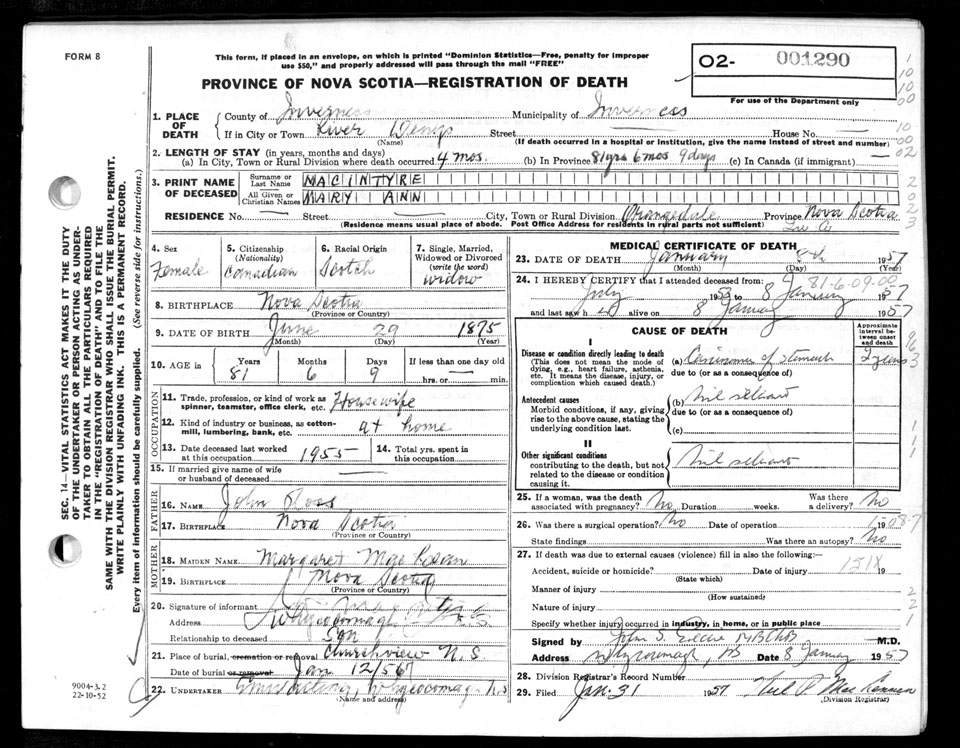 FORM 8
This form, if placed in an envelope, on which is printed "Dominion Statistics—Free, penalty for improper
use $50," and properly addressed will pass through the mail "FREE"
PROVINCE OF NOVA SCOTIA—REGISTRATION OF DEATH
O2- 001290
For use of the Department only
1. PLACE OF DEATH
County of Inverness Municipality of Inverness
If in City or Town River Denys Street House No.
(Name) (If death occurred in a hospital or institution, give the name instead of street and number)
2. LENGTH OF STAY (in years, months and days)
(a) In City, Town or Rural Division where death occurred 4 mos. (b) In Province 81 yrs 6 mos 9 days (c) In Canada (if immigrant) —
3. PRINT NAME OF DECEASED
Surname or Last Name MACINTYRE
All Given or Christian Names MARY ANN
RESIDENCE No. — Street — City, Town or Rural Division Orangedale Province Nova Scotia
(Residence means usual place of abode. Post Office Address for residents in rural parts not sufficient)
4. Sex Female
5. Citizenship (Nationality) Canadian
6. Racial Origin Scotch
7. Single, Married, Widowed or Divorced (write the word) Widow
8. BIRTHPLACE Nova Scotia
(Province or Country)
9. DATE OF BIRTH June 29 1875
(Month) (Day) (Year)
10. AGE in Years 81 Months 6 Days 9 If less than one day old
hrs. or min.
OCCUPATION
11. Trade, profession, or kind of work as spinner, teamster, office clerk, etc. Housewife
12. Kind of industry or business, as cotton-mill, lumbering, bank, etc. at home
13. Date deceased last worked at this occupation 1955
14. Total yrs. spent in this occupation
15. If married give name of wife or husband of deceased
FATHER
16. NAME John Ross
17. BIRTHPLACE Nova Scotia
(Province or Country)
MOTHER
18. MAIDEN NAME Margaret
19. BIRTHPLACE Nova Scotia
(Province or Country)
20. Signature of informant
Address Whycocomagh N.S.
Relationship to deceased Son
21. Place of burial, cremation or removal Churchview N.S
Date of burial or removal Jan 12/567
22. UNDERTAKER Whycocomagh N.S
(Name and address)
MEDICAL CERTIFICATE OF DEATH
23. DATE OF DEATH January 8th 1957
(Month) (Day) (Year)
81-6-09-00
24. I HEREBY CERTIFY that I attended deceased from:
July 19 to 8 January 1957
and last saw h er alive on 8 January 1957
CAUSE OF DEATH
Approximate interval between onset and death
I
Disease or condition directly leading to death
(This does not mean the mode of dying, e.g., heart failure, asthenia, etc. It means the disease, injury, or complication which caused death.)
(a) Carcinoma of Stomach 2 years
due to (or as a consequence of)
Antecedent causes
Morbid conditions, if any, giving rise to the above cause, stating the underlying condition last.
(b) Nil relevant
due to (or as a consequence of)
(c)
II
Other significant conditions
contributing to the death, but not related to the disease or condition causing it.
Nil relevant
25. If a woman, was the death associated with pregnancy? No Duration weeks. Was there a delivery? No
26. Was there a surgical operation? No Date of operation 19
State findings Was there an autopsy? No
27. If death was due to external causes (violence) fill in also the following:—
Accident, suicide or homicide? Date of injury 151X 19
(State which)
Manner of injury
(How sustained)
Nature of injury
Specify whether injury occurred in industry, in home, or in public place
Signed by John S. MBChB M.D.
Address Whycocomagh, NS Date 8 January 1957
28. Division Registrar's Record Number
29. Filed Jan. 31 1957 Neil P. Mac
(Division Registrar)
SEC. 14—VITAL STATISTICS ACT MAKES IT THE DUTY
OF THE UNDERTAKER OR PERSON ACTING AS UNDER-
TAKER TO OBTAIN ALL THE PARTICULARS REQUIRED
IN THE "REGISTRATION OF DEATH" AND TO FILE THE
SAME WITH THE DIVISION REGISTRAR WHO SHALL ISSUE THE BURIAL PERMIT.
WRITE PLAINLY WITH UNFADING INK. THIS IS A PERMANENT RECORD.
Every item of information should be carefully supplied. (See reverse side for instructions.)
9004-3.2
22-10-52